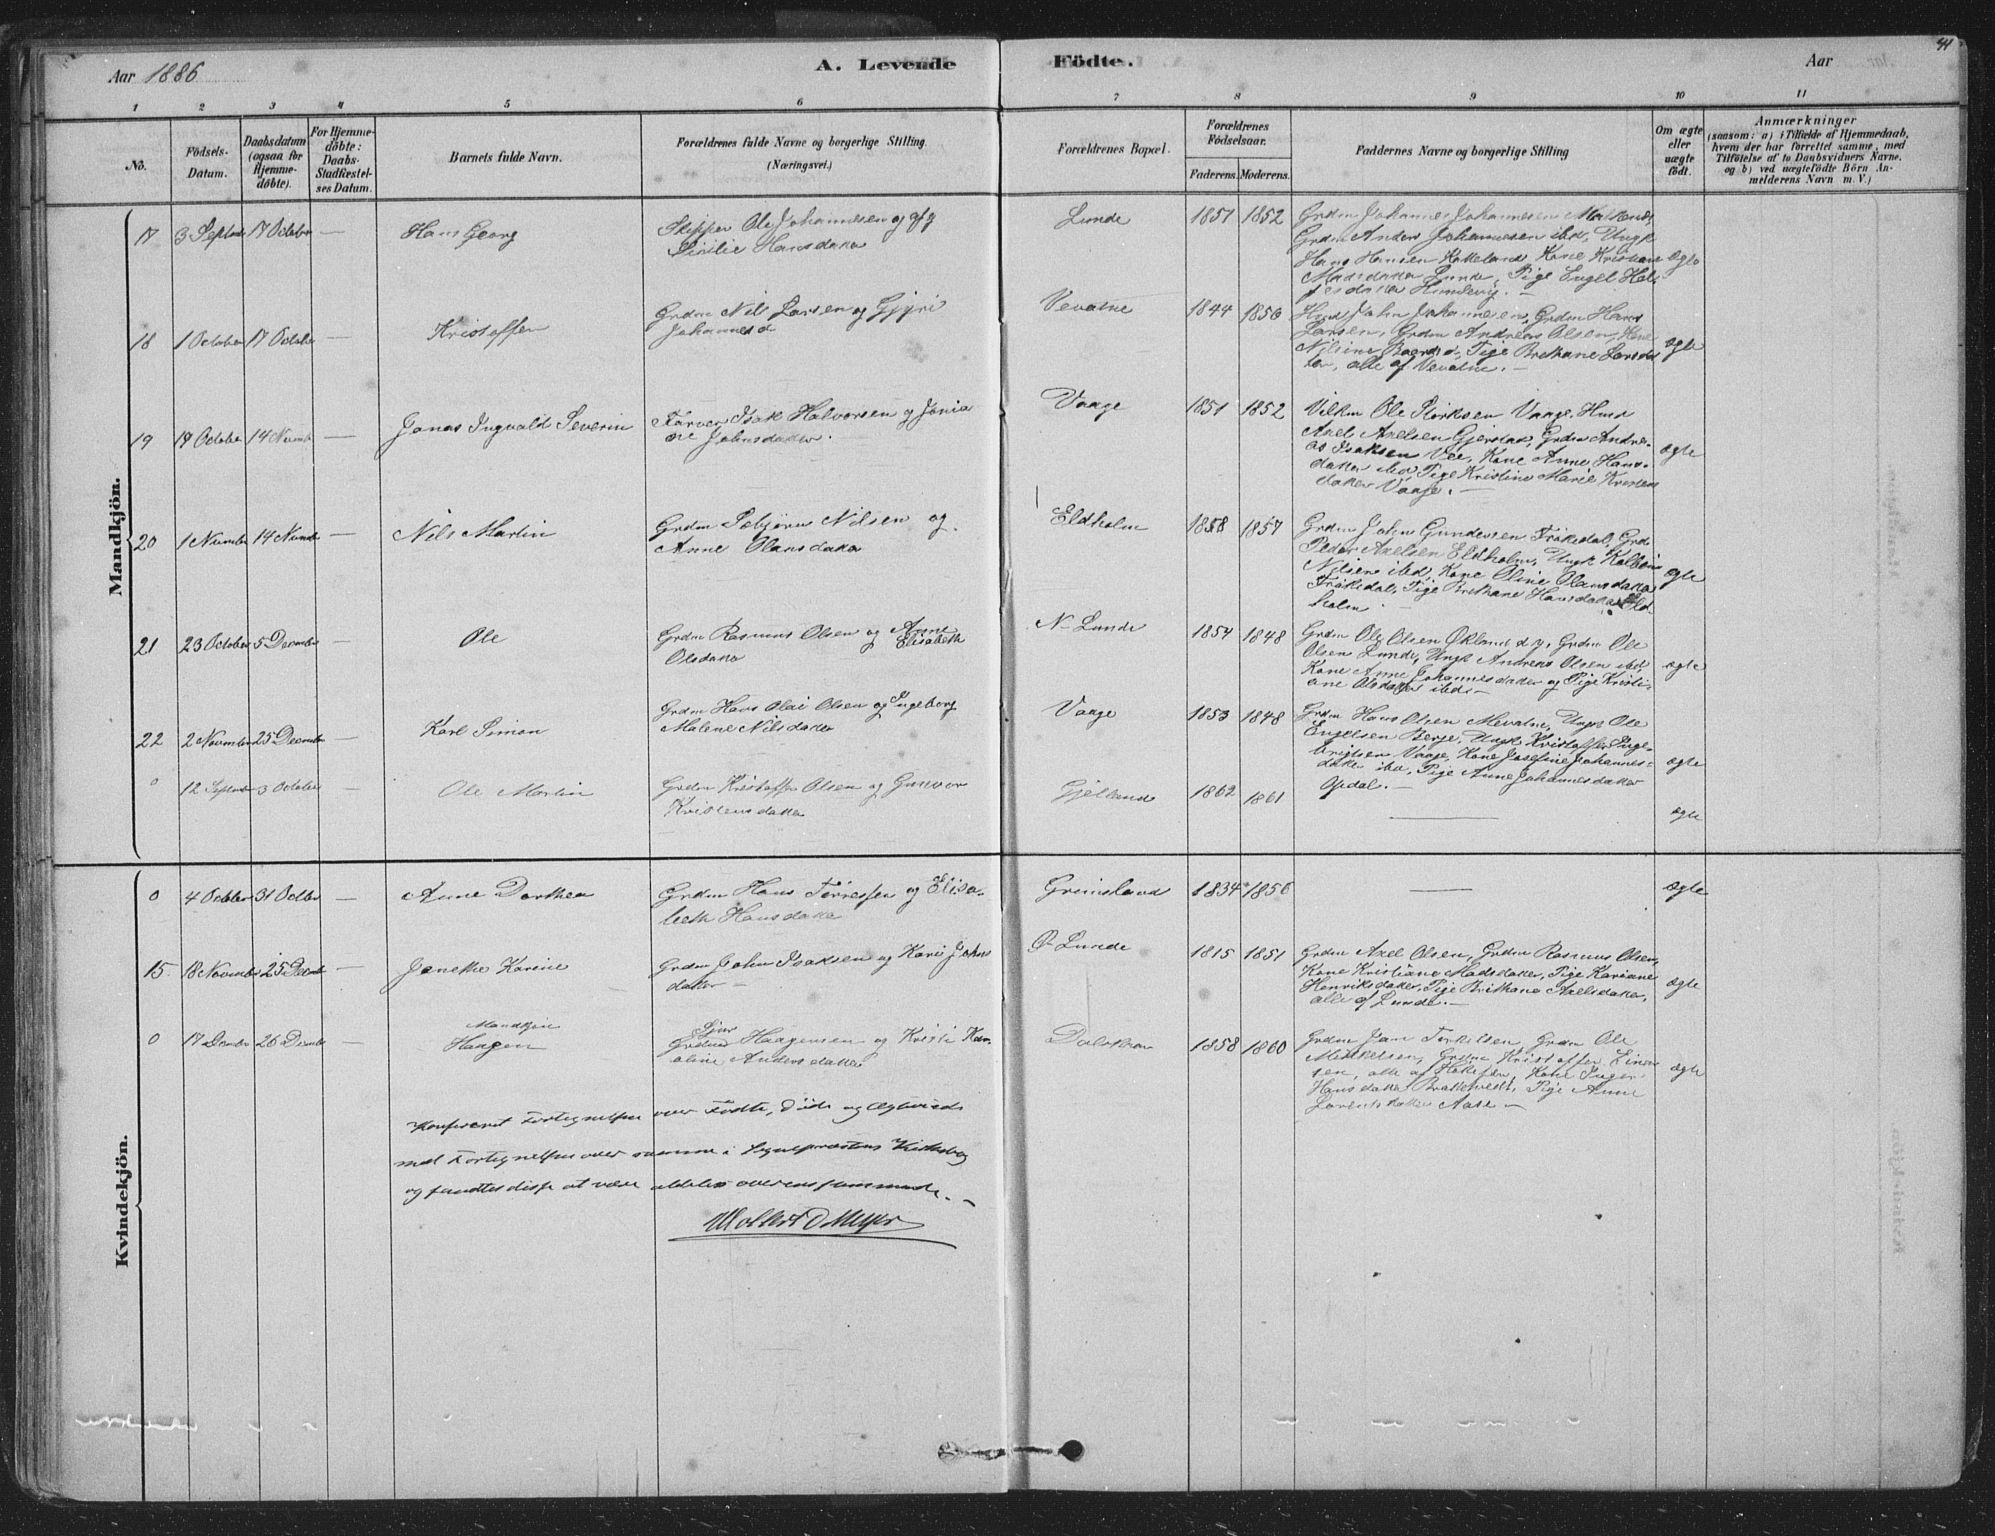 Aar 1886
A. Levende
Födte.
Aar
44
1
2
3
4
5
6
7
8
9
10
11
No.
Födsels-
Datum.
Daabsdatum
(ogsaa for
Hjemme-
döbte).
For Hjemme-
döbte:
Daabs-
Stadfæstel-
ses Datum.
Barnets fulde Navn.
Forældrenes fulde Navne og borgerlige Stilling
(Næringsvei.)
Forældrenes Bopæl.
Forældrenes
Födselsaar.
Faderens.
Moderens.
Faddernes Navne og borgerlige Stilling
Om ægte
eller
uægte
födt.
Anmærkninger
(saasom: a) i Tilfælde af Hjemmedaab,
hvem der har forrettet samme, med
Tilföielse af to Daabsvidners Navne.
og b) ved uægtefödte Börn An-
melderens Navn m. V.)
Mandkjön.
17
3 Septbr
17 October
—
Hans Georg
Skipper Ole Johannesen og
Sirilie Hansdatter
Lunde
1851
1852
Grdm Johannes Johannesen
Grdm Anders Johannesen ibd, Ungk
Hans Hansen Kone Kristiane
Madsdatter Lunde, Pige Engel
ægte
18
1 October
17 October
—
Kristoffer
Grdm Nils Larsen og
Johannesd
Vevatne
1844
1856
Husm John Johannesen, Grdm Hans
Larsen, Grdm Andreas Olsen, Kone
Nilsine Baardsd, Pige Brithane Larsdat
ter, alle af Vevatne. —
ægte
19
19 October
14 Novmb
—
Jonas Ingvald Severin
Farver Isak Halvorsen og
ne Johnsdatter.
Vaage
1851
1852
Ole Störksen Vaage, Husm
Axel Axelsen Gjerstad, Grdm Andre-
as Isaksen Vee, Kone Anne Hans-
datter ibd, Pige Kristine Marie Kristens
datter Vaage. —
ægte
20
1 Novmbr
14 Novmb
—
Nils Martin
Grdm Nilsen og
Anne Olansdatter
Eldholm
1858
1857
Grdm John Gundersen Grd
Peder Axelsen Eldholm, Ungk
Nilsen ibd, Kone Oline Olansdatter
Pige Brithane Hansdatter Eld
holm
ægte
21
23 October
5 Decembr
—
Ole
Grdm Rasmus Olsen og Anne
Elisabeth
Olsdatter
N. Lunde
1854
1848
Grdm Ole Olsen Økland d. y., Grdm Ole
Olsen Lunde, Ungk Andreas Olsen ibd,
Kone Anne Johannesdatter og Pige Kristi-
ane Olsdatter ibd. —
ægte
22
2 November
25 Decembr
—
Karl Simon
Grdm Hans Olai Olsen og Ingeborg
Malene Nilsdatter
Vaage
1853
1848
Grdm Hans Olsen Mevatne, Ungk Ole
Engelsen Berge, Ungk Kristoffer Inge-
brigtsen Vaage, Kone Josefine Johannes-
datter ibd, Pige Anne Johannesdatter
Opdal. —
ægte
0
12 Septembr
3 October
Ole Martin
Grdm Kristoffer Olsen og Gunvor
Kristensdatter
Gjelland
1862
1861
—
ægte
Kvindekjön.
0
4 October
31 Octbr
—
Anne Dorthea
Grdm Hans Tørresen og Elisa-
beth Hansdatter
Grimsland
1834
1856
—
ægte
15
18 Novembr
25 Decmb
—
Janekke Karine
Grdm John Isaksen og Kari Johns
datter —
Ø. Lunde
1815
1851
Grdm Axel Olsen, Grdm Rasmus Olsen,
Kone Kristiane Madsdatter, Pige Kariane
Henriksdatter, Pige Brithane Axelsdatter,
alle af Lunde. —
ægte
0
17 Decmbr
26 Decmbr
—
Mandkjön
Haagen
Sjur
Grdm Haagensen og Kristi Kar-
oline Andersdatter
1858
1860
Grdm Jan Torkilsen, Grdm Ole
Mikkelsen, Grdm Kristoffer Einar
sen, alle af Kone Inger
Hansdatter Pige Anne
Larensdatter Aase —
ægte
Konfereret Fortegnelsen over Födte, Döde og Ægteviede
med Fortegnelsen over samme i Sogneprestens Kirkebog
og fandtes disse at være aldeles overensstemmende. —
Wollert D Meyer